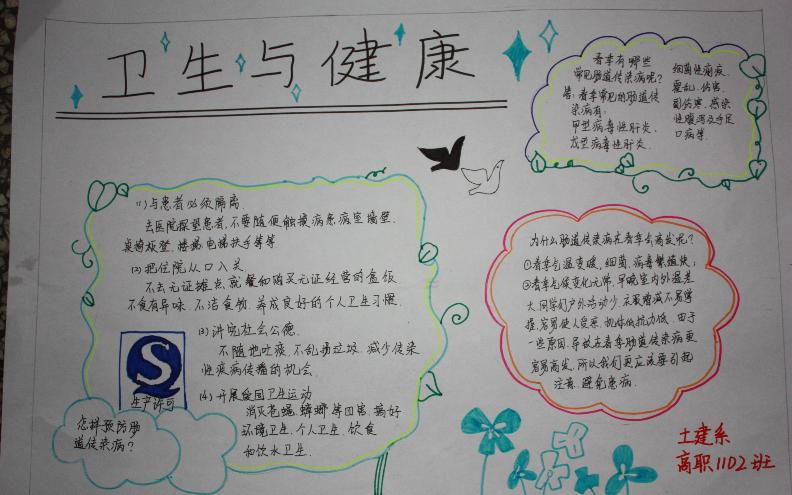 卫生与健康
春季有哪些
常见肠道传染病呢?
答:春季常见的肠道传
染病有:
甲型病毒性肝炎、
戊型病毒性肝炎、
细菌性痢疾、
霍乱、伤害、
副伤害、感染
性腹泻及手足
口病等.
(1)与患者必须隔离.
去医院探望患者,不要随便触摸病患病室墙壁、
桌椅板登、楼梯电梯扶手等等.
(2)把住院从口入关
不去无证摊点就餐和购买无证经营的盒饭
不食有异味、不洁食物、养成良好的个人卫生习惯.
(3)讲究社会公德.
不随地吐痰、不乱扔垃圾、减少传染
性疾病传播的机会.
(4)开展爱国卫生运动
消灭苍蝇、蟑螂等四害、搞好
环境卫生、个人卫生、饮食
和饮水卫生.
S
生产许可
怎样预防肠
道传染病?
为什么肠道传染病在春季会高发呢?
①春季气温变暖,细菌、病毒繁殖快;
②春季气候变化无常,早晚室内外温差
大、同学们户外活动少、衣服增减不易掌
握、容易使人受寒、机体抵抗力低、由于
一些原因、导致在春季肠道传染病更
容易高发,所以我们更应该要引起
注意、避免患病.
土建系
高职1102班